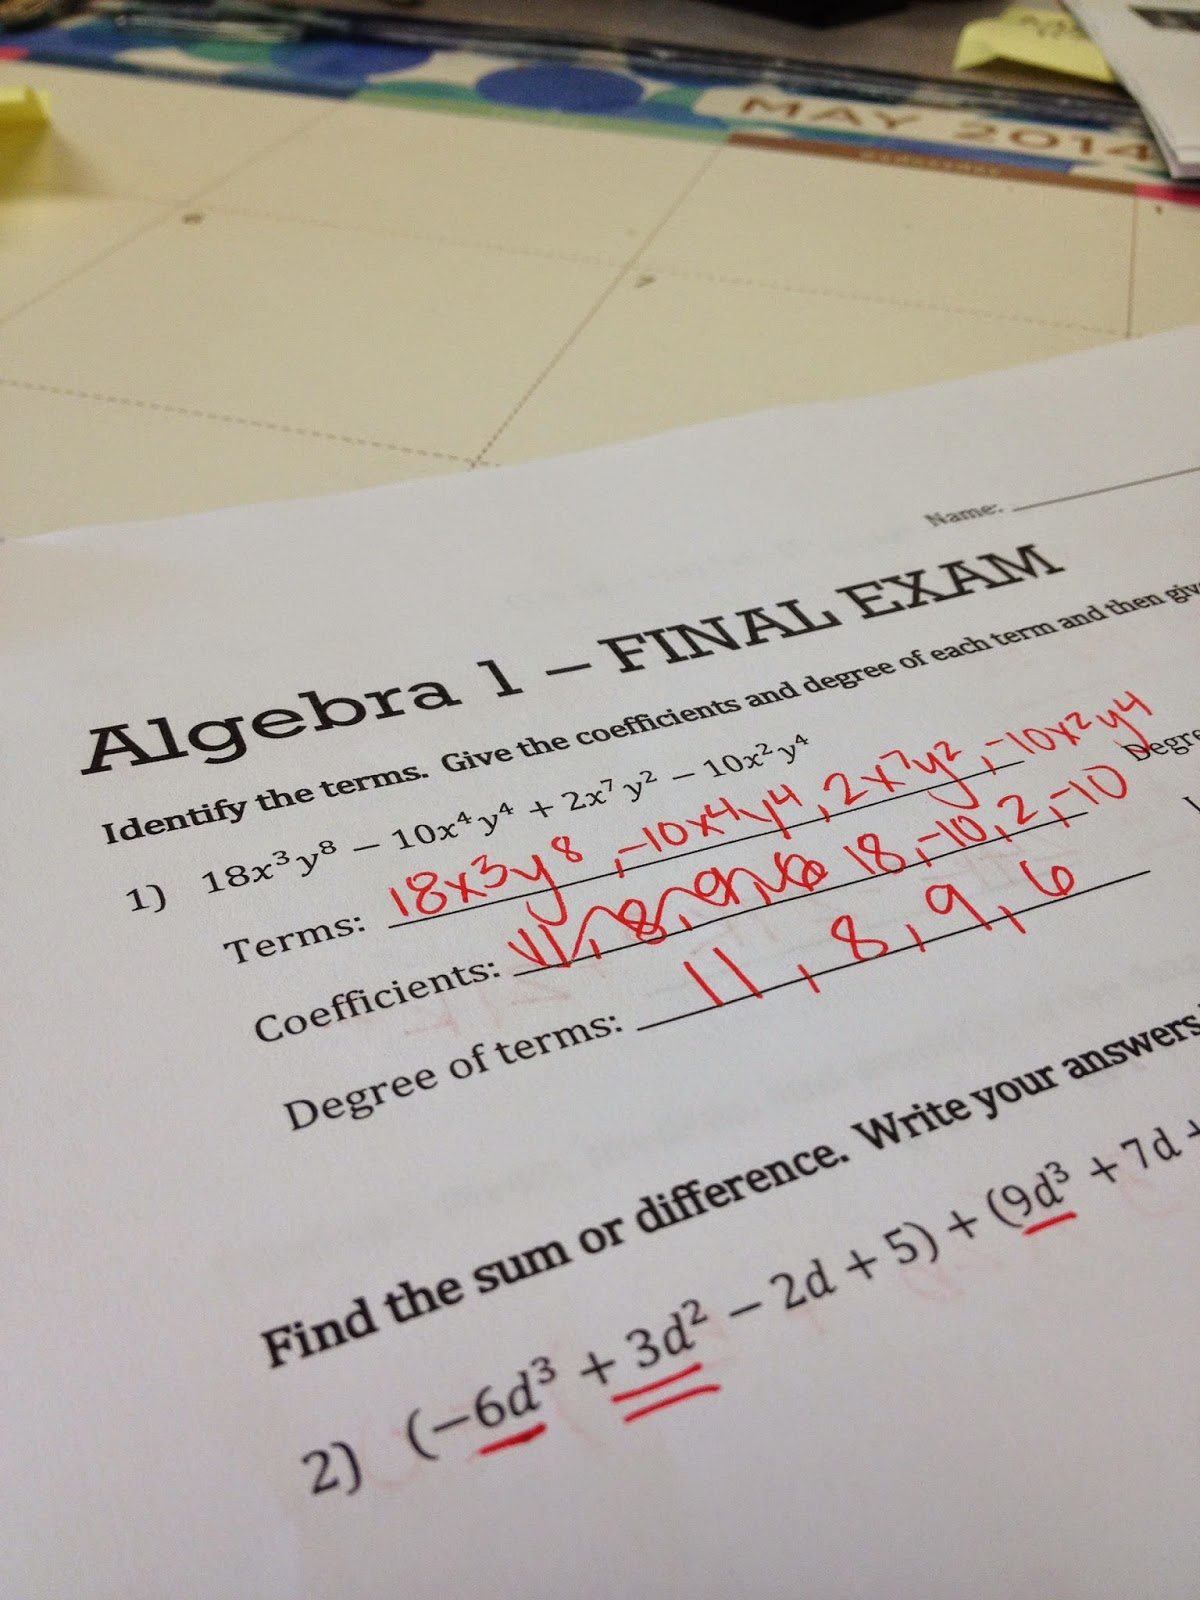 MAY 2014
WEDNESDAY
1
6
7
Name:
Algebra 1 – FINAL EXAM
Identify the terms. Give the coefficients and degree of each term and then give
1) 18x³y⁸ – 10x⁴y⁴ + 2x⁷y² – 10x²y⁴
Terms: 18x³y⁸, -10x⁴y⁴, 2x⁷y², -10x²y⁴ Degre
Coefficients: 18, -10, 2, -10
Degree of terms: 11, 8, 9, 6
Find the sum or difference. Write your answers
2) (−6d³ + 3d² − 2d + 5) + (9d³ + 7d +